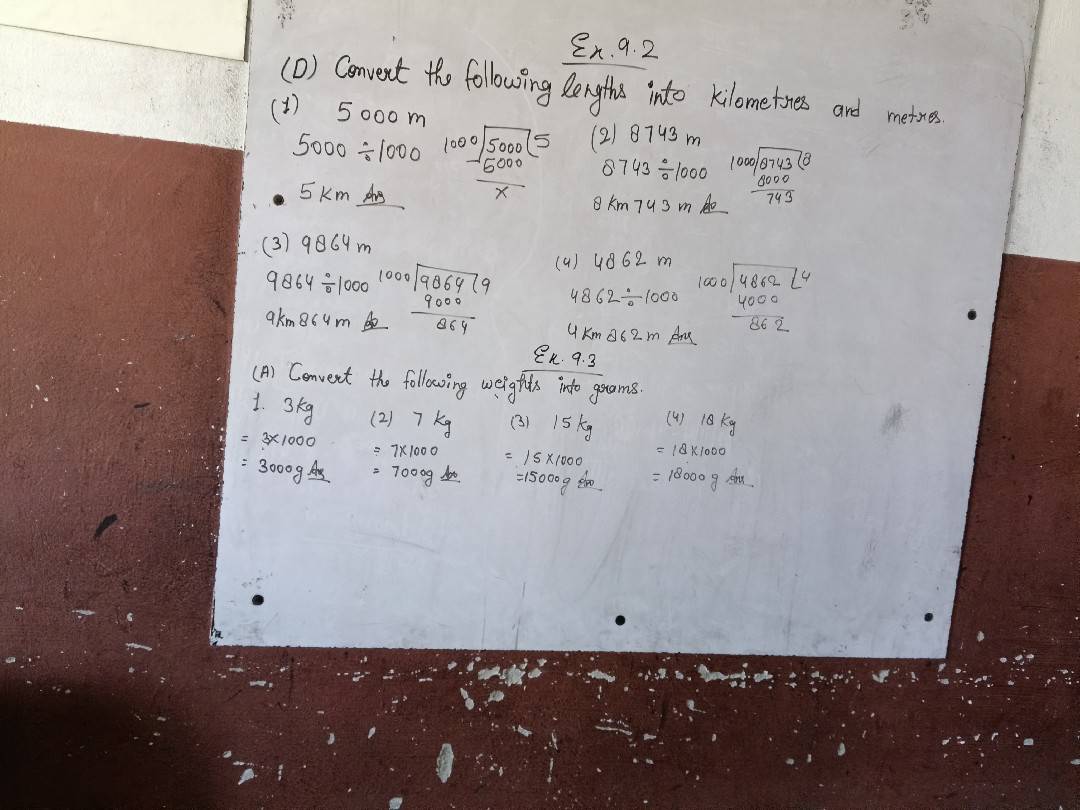 Ex. 9.2
(D) Convert the following lengths into kilometres and metres.
(1) 5000 m
5000 ÷ 1000
1000 5000 5
5000
x
5 km Ans
(2) 8743 m
8743 ÷ 1000
1000 8743 8
8000
743
8 km 743 m
(3) 9864 m
9864 ÷ 1000
1000 9864 9
9000
864
9 km 864 m
(4) 4862 m
4862 ÷ 1000
1000 4862 4
4000
862
4 km 862 m Ans
Ex. 9.3
(A) Convert the following weights into grams.
1. 3 kg
= 3×1000
= 3000g Ans
(2) 7 kg
= 7×1000
= 7000g
(3) 15 kg
= 15×1000
= 15000g
(4) 18 kg
= 18×1000
= 18000 g Ans